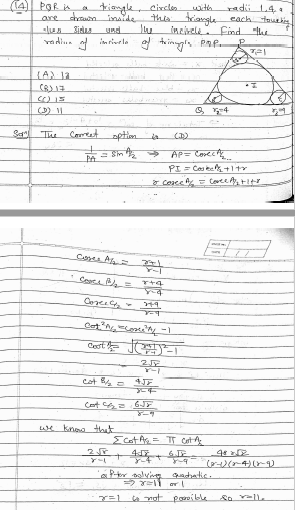 (14) PQR is a triangle, circles with radii 1, 4, 9
are drawn inside this triangle each touching
two sides and the incircle. Find the
radius of incircle of triangle PQR.
(A) 13
(B) 17
(C) 15
(D) 11
P
r₁=1
I
Q r₂=4
r₃=9
Sol: The correct option is (D)
1/PA = sin A/2 ⇒ AP = cosec A/2
PI = cosec A/2 + 1 + r
r cosec A/2 = cosec A/2 + 1 + r
cosec A/2 = r+1/r-1
cosec B/2 = r+4/r-4
cosec C/2 = r+9/r-9
cot² A/2 = cosec² A/2 - 1
cot A/2 = √((r+1/r-1)² - 1)
2√r/r-1
cot B/2 = 4√r/r-4
cot C/2 = 6√r/r-9
we know that
Σ cot A/2 = Π cot A/2
2√r/r-1 + 4√r/r-4 + 6√r/r-9 = 48 r√r/(r-1)(r-4)(r-9)
after solving quadratic.
⇒ r=11 or 1
r=1 is not possible so r=11.